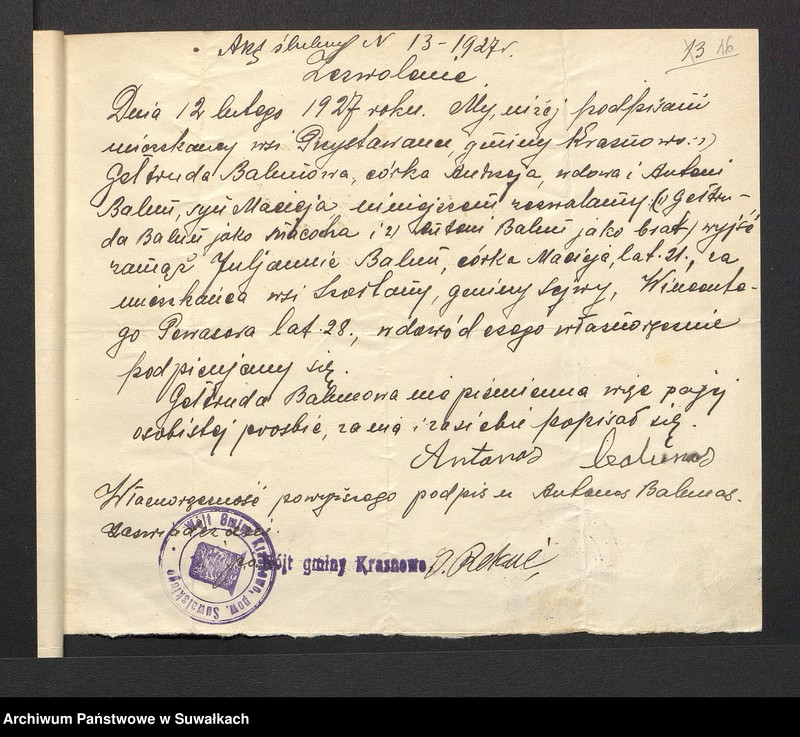 Akt ślubny N 13-1927 r.
13 16
Zezwolenie.
Dnia 12 lutego 1927 roku. My, niżej podpisani
mieszkańcy wsi Przystawańce, gminy Krasnowo: 1)
Gertruda Balunowa, córka Andrzeja, wdowa i Antoni
Baluń, syn Macieja niniejszem zezwalamy, (1) Gertru-
da Baluń jako macocha i 2) Antoni Baluń jako brat) wyjść
zamąż Juljannie Baluń, córka Macieja, lat 21., za
mieszkańca wsi Szołtany, gminy Sejwy, Wincente-
go lat 28., w dowód czego własnoręcznie
podpisujemy się.
Gertruda Balunowa niepiśmienna więc po jej
osobistej prośbie, za nią i za siebie popisał się.
Antanas Balunas
Własnoręczność powyższego podpisu Antanas Balunas.
zaświadczam.
Wójt gminy Krasnowo,
Wójt Gminy Krasnowo, pow. Suwalskiego
Archiwum Państwowe w Suwałkach